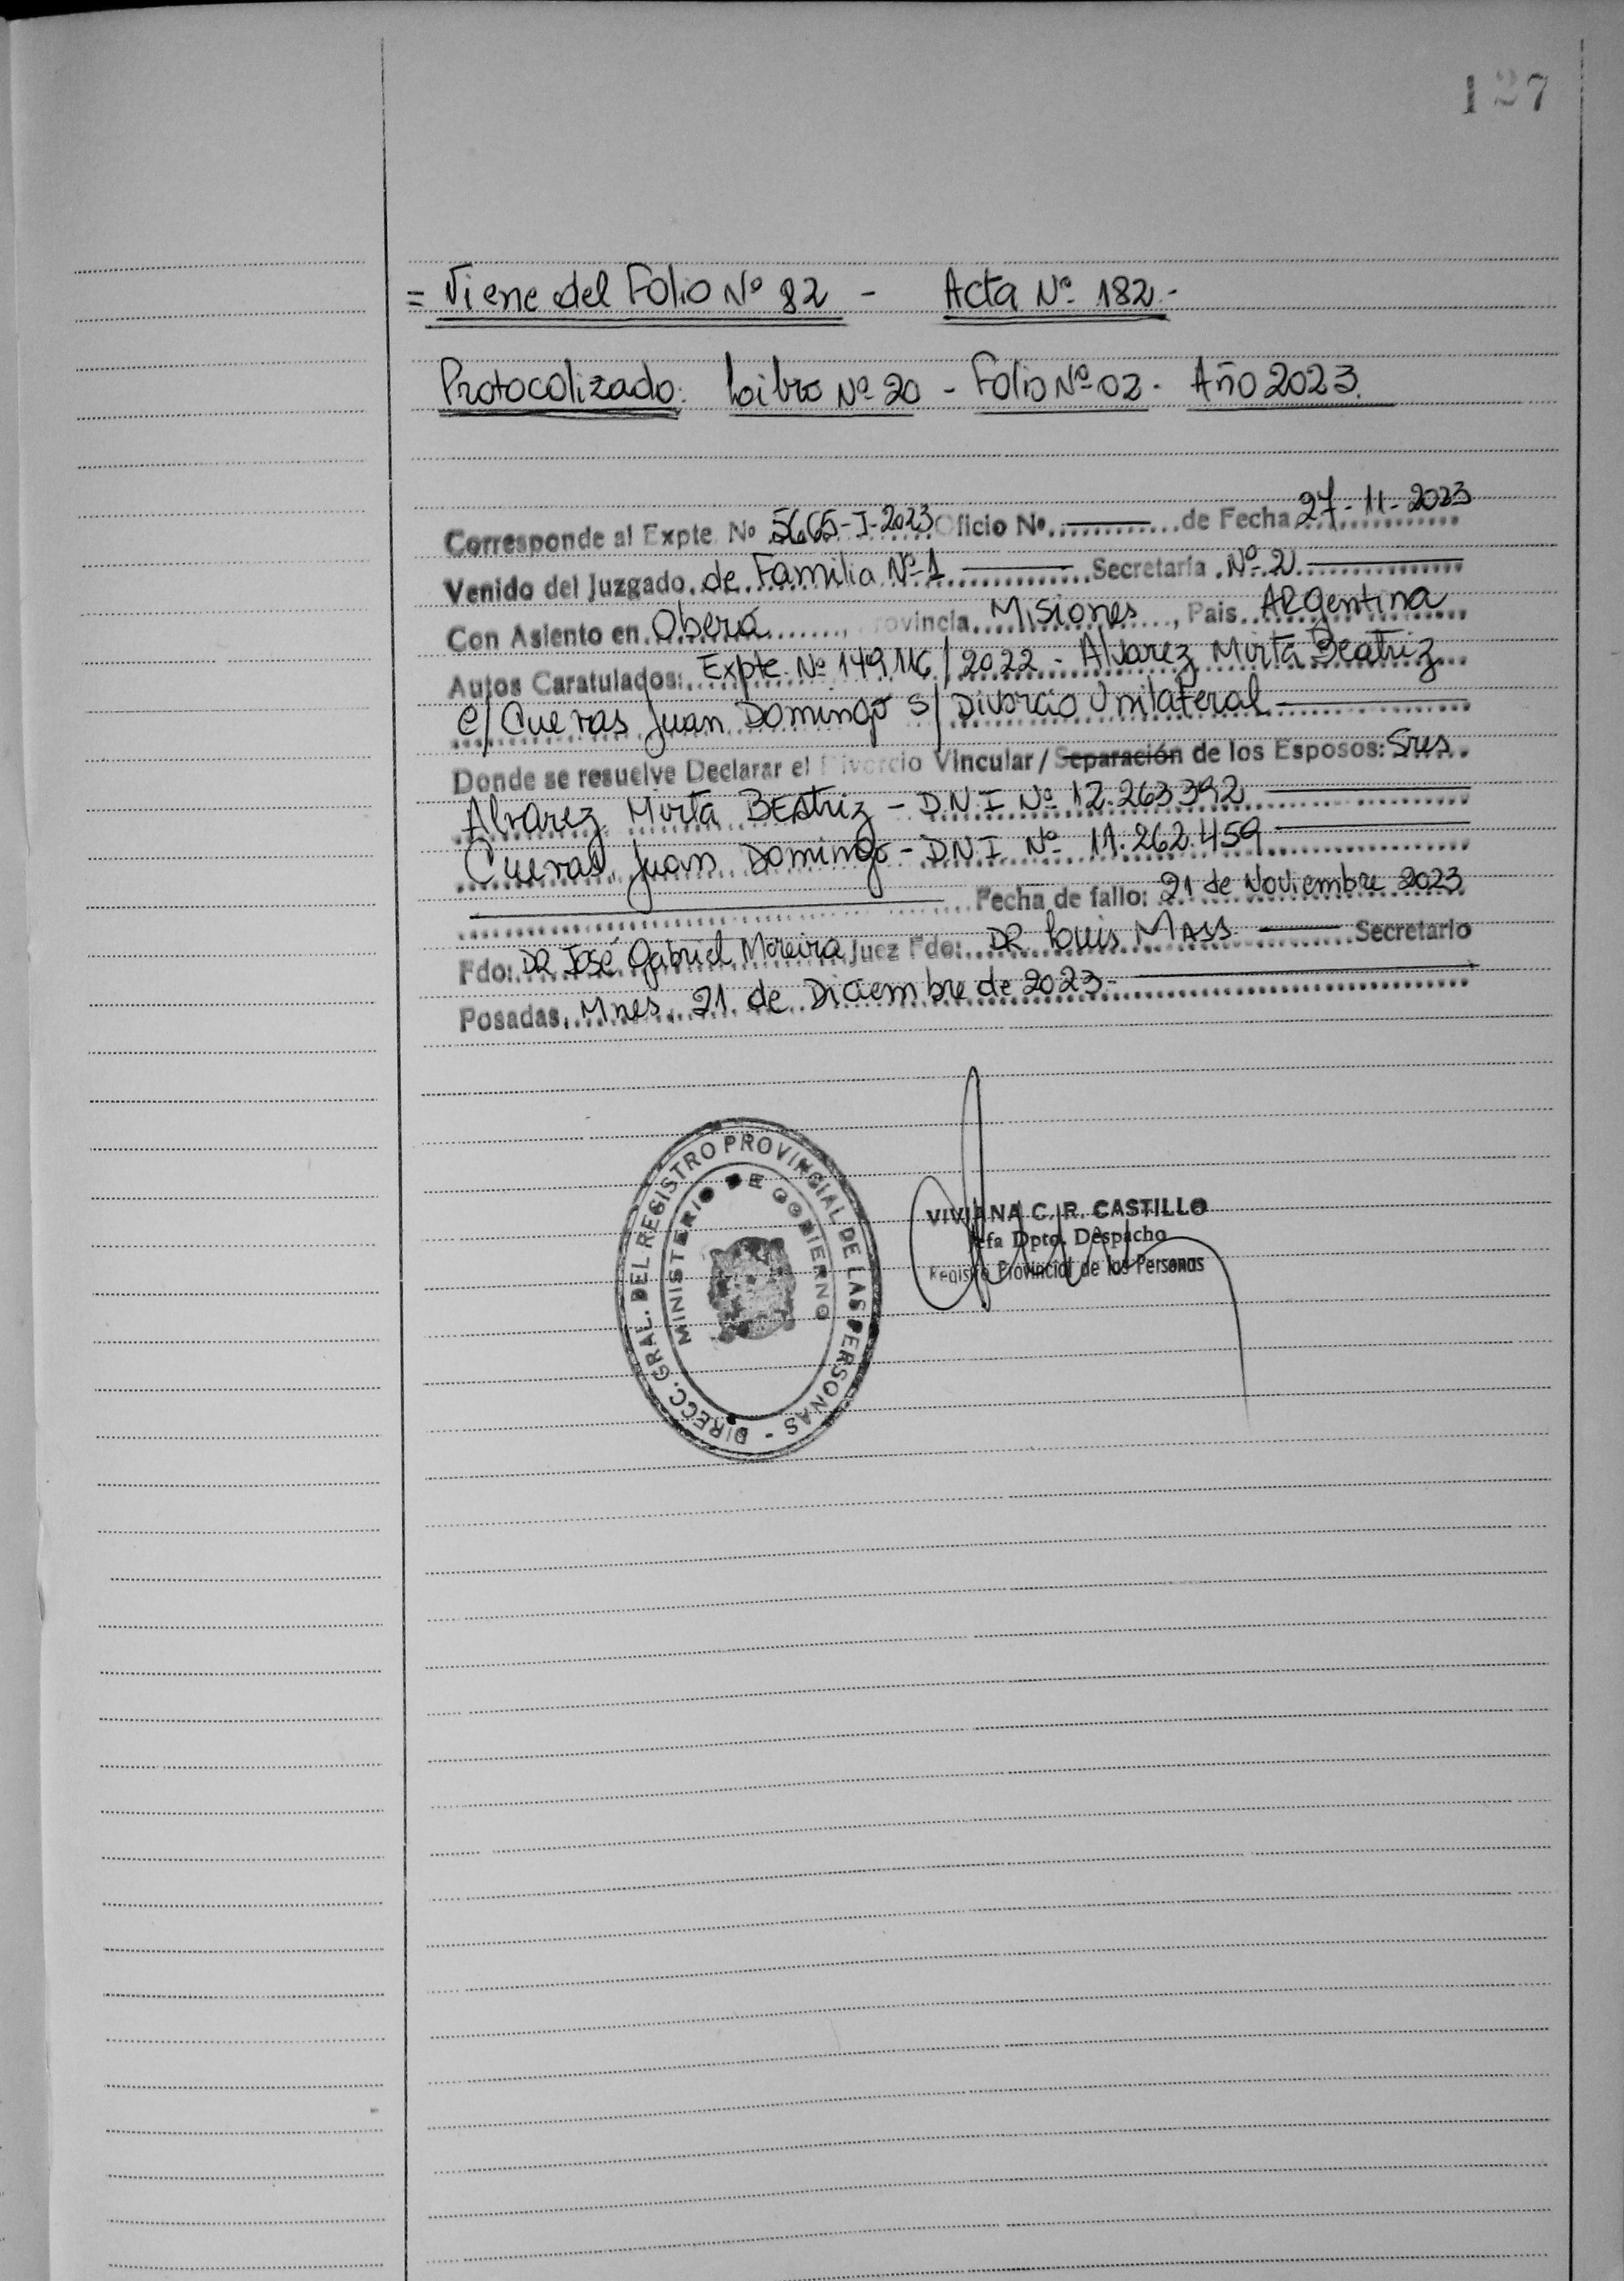 127
= Viene del Folio Nº 82 - Acta Nº 182.-
Protocolizado: Libro Nº 20 - Folio Nº 02 - Año 2023.
Corresponde al Expte. Nº 5665-I-2023 Oficio Nº. de Fecha 27-11-2023
Venido del Juzgado de Familia Nº 1 Secretaría Nº 2
Con Asiento en Oberá, Provincia Misiones, Pais Argentina
Autos Caratulados: Expte. Nº 149116/2022 - Alvarez Mirta Beatriz
c/ Cuevas Juan Domingo s/ Divorcio Unilateral
Donde se resuelve Declarar el Divorcio Vincular / Separación de los Esposos: Sres.
Alvarez Mirta Beatriz - D.N.I Nº 12.263.392
Cuevas Juan Domingo - D.N.I Nº 11.262.459
Fecha de fallo: 21 de Noviembre 2023
Fdo: DR José Gabriel Moreira Juez Fdo: DR Louis Mass Secretario
Posadas, Mnes, 21 de Diciembre de 2023.-
DIRECC. GRAL. DEL REGISTRO PROVINCIAL DE LAS PERSONAS -
MINISTERIO DE GOBIERNO
VIVIANA C. R. CASTILLO
Jefa Dpto. Despacho
Registro Provincial de las Personas